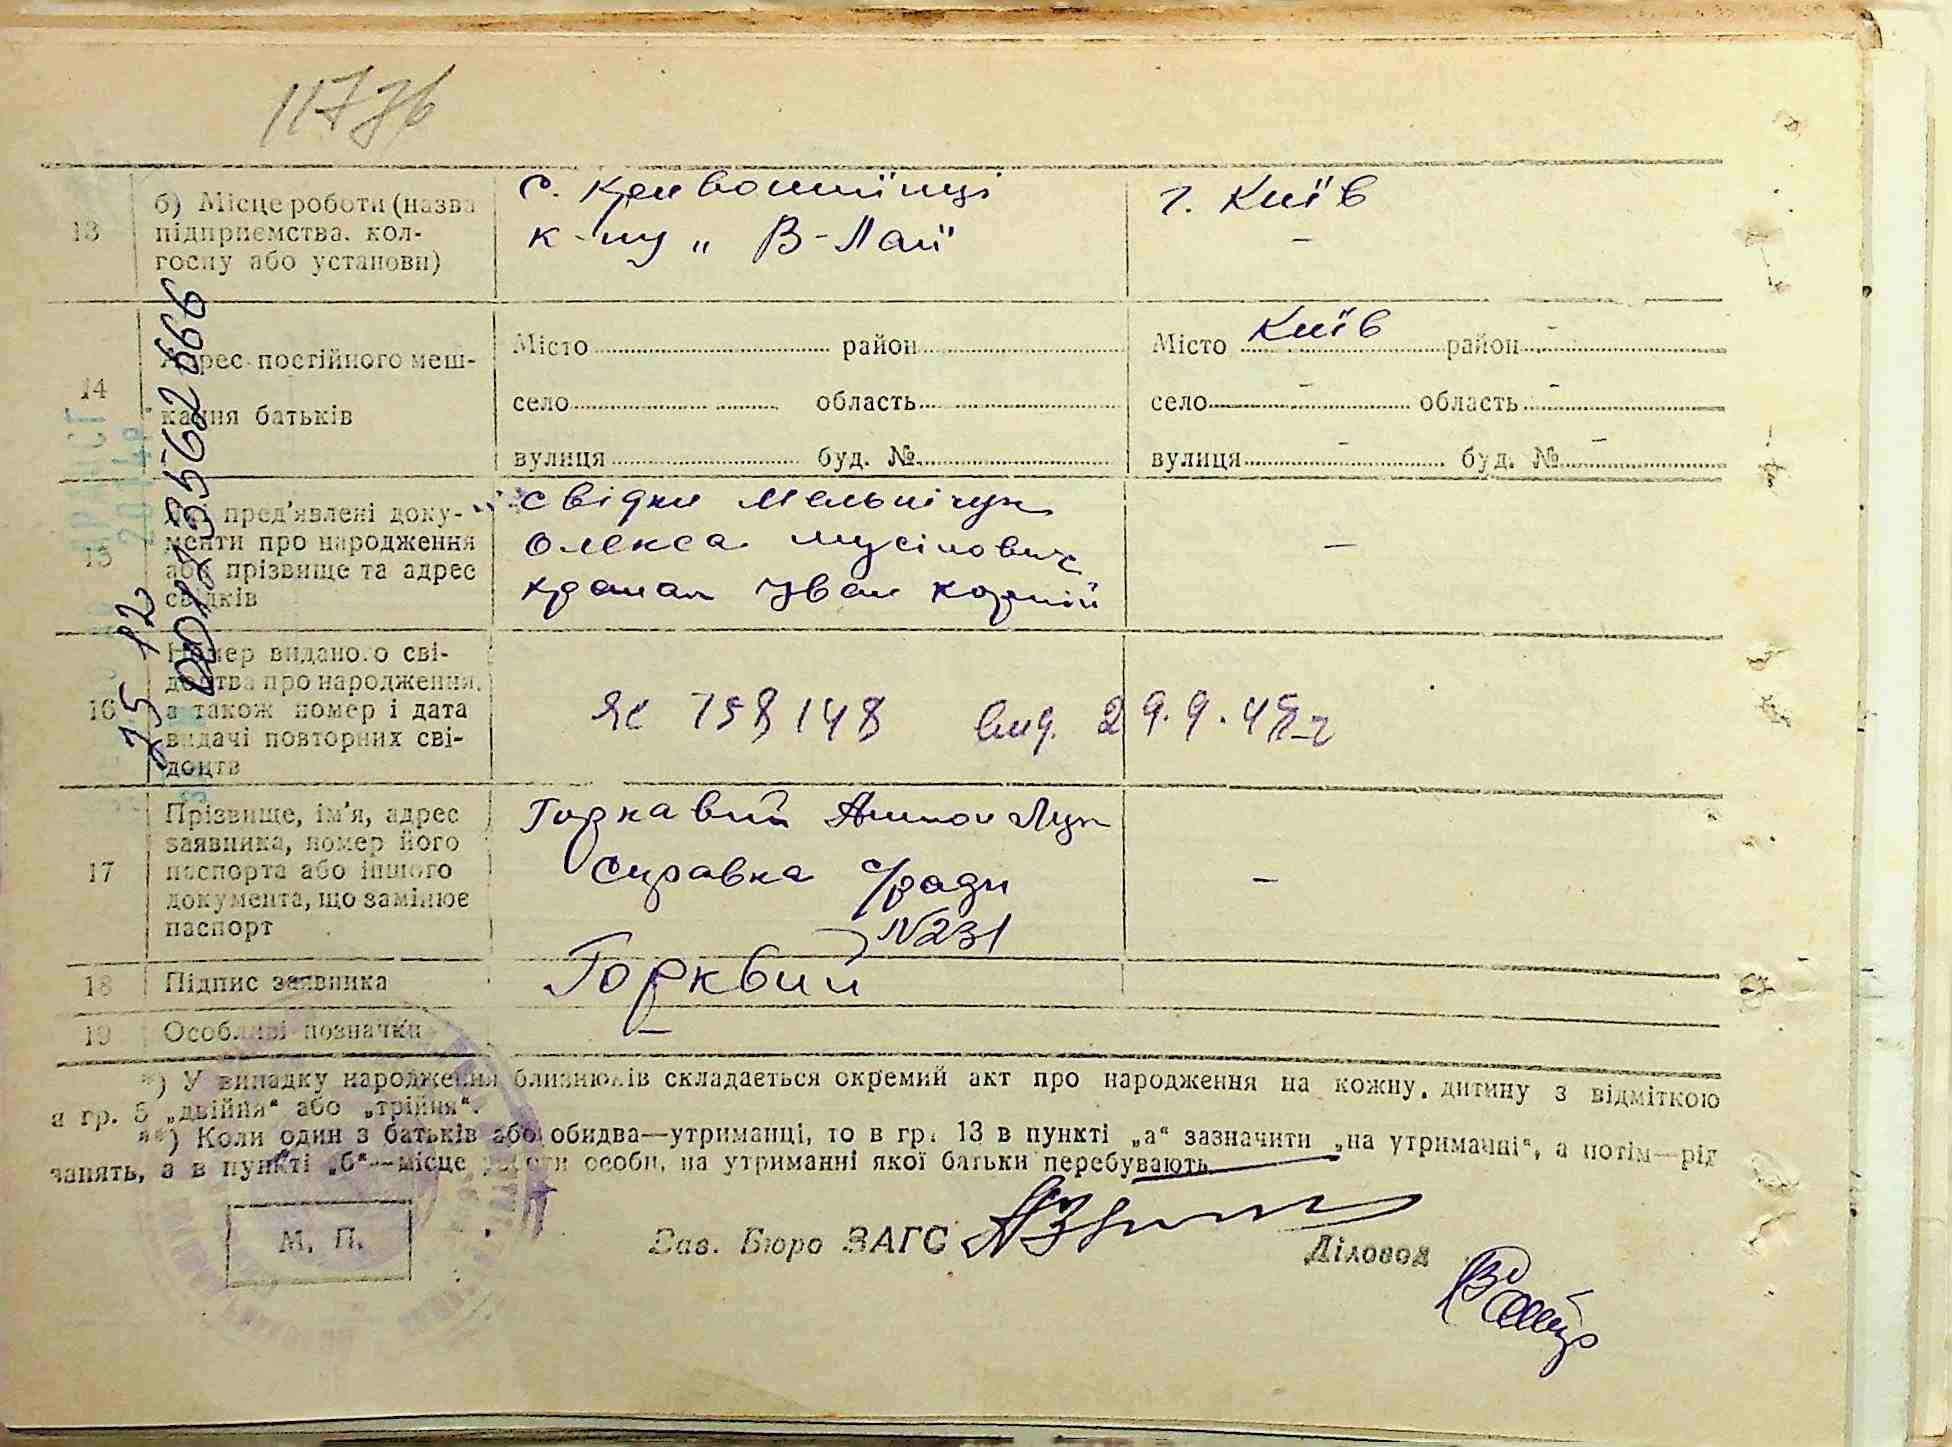 13 б) Місце роботи (назва підприємства, колгоспу або установи)
с. Кривошиїнці
г. Київ
к-пу „ В-Лан"
–
14 Адрес постійного мешкання батьків
Місто район
Місто Київ район –
село область
село – область –
вулиця буд. №
вулиця – буд. № –
15 пред'явлені документи про народження або прізвище та адрес свідків
свідки Мельнічук
Олекса Мусійович
Іван Корній
–
00013562666
75 12
16 Номер виданого свідоцтва про народження, а також номер і дата видачі повторних свідоцтв
ЯЄ 758148 вид. 29.9.45 г
17 Прізвище, ім'я, адрес заявника, номер його паспорта або іншого документа, що замінює паспорт
Горкавий Антон Лук
Справка с/ради
№231
–
18 Підпис заявника
Горквий
19 Особливі позначки
–
*) У випадку народження близнюків складається окремий акт про народження на кожну дитину з відміткою
в гр. 5 „двійня“ або „трійня“.
**) Коли один з батьків або обидва—утриманці, то в гр. 13 в пункті „а“ зазначити „на утриманні“, а потім—рід
занять, а в пункті „б“—місце роботи особи, на утриманні якої батьки перебувають
М. П.
Зав. Бюро ЗАГС
Діловод